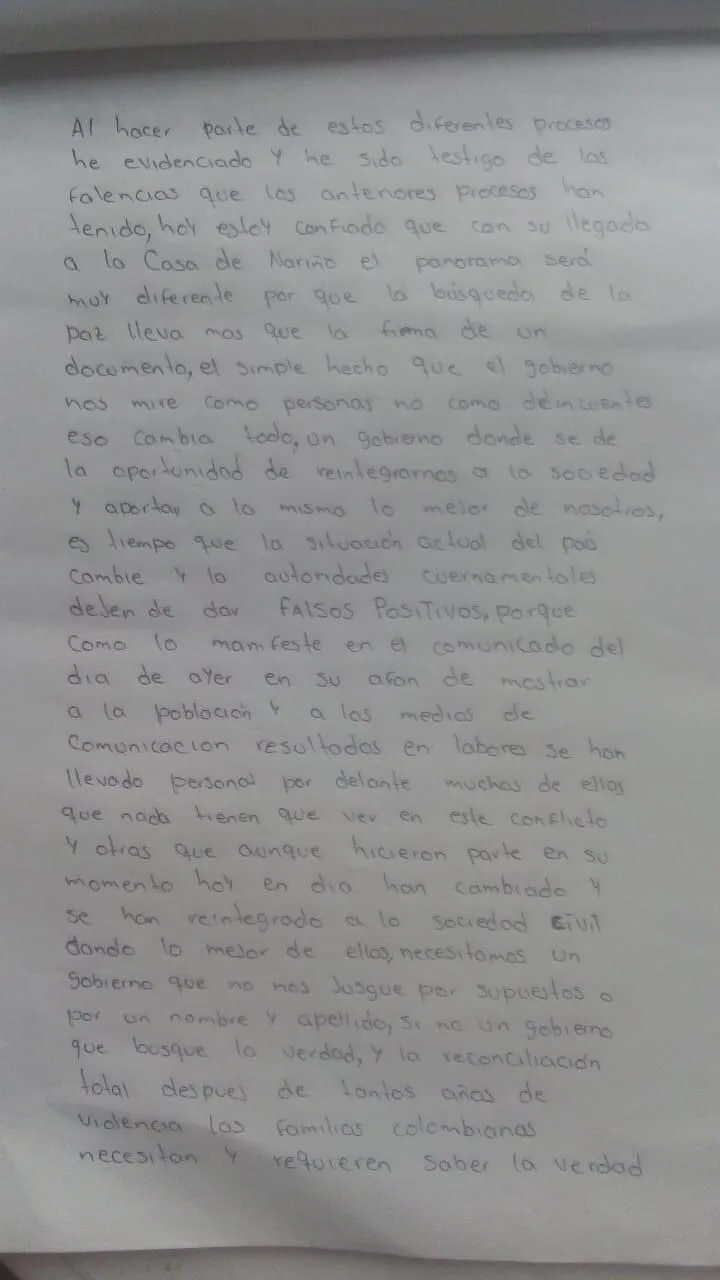 Al hacer parte de estos diferentes procesos
he evidenciado y he sido testigo de las
falencias que los anteriores procesos han
tenido, hoy estoy confiado que con su llegada
a la Casa de Nariño el panorama será
muy diferente por que la búsqueda de la
paz lleva mas que la firma de un
documento, el simple hecho que el gobierno
nos mire como personas no como delincuentes
eso cambia todo, un gobierno donde se de
la oportunidad de reintegrarnos a la sociedad
y aportar a la misma lo mejor de nosotros,
es tiempo que la situación actual del país
cambie y la autoridades cuernamentales
dejen de dar FALSOS POSITIVOS, porque
como lo manifeste en el comunicado del
dia de ayer en su afan de mostrar
a la población y a los medios de
comunicacion resultados en labores se han
llevado personas por delante muchas de ellas
que nada tienen que ver en este conflicto
y otras que aunque hicieron parte en su
momento hoy en dia han cambiado y
se han reintegrado a la sociedad civil
dando lo mejor de ellos, necesitamos un
gobierno que no nos jusgue por supuestos o
por un nombre y apellido, si no un gobierno
que busque la verdad, y la reconciliación
total despues de tantos años de
violencia las familias colombianas
necesitan y requieren saber la verdad